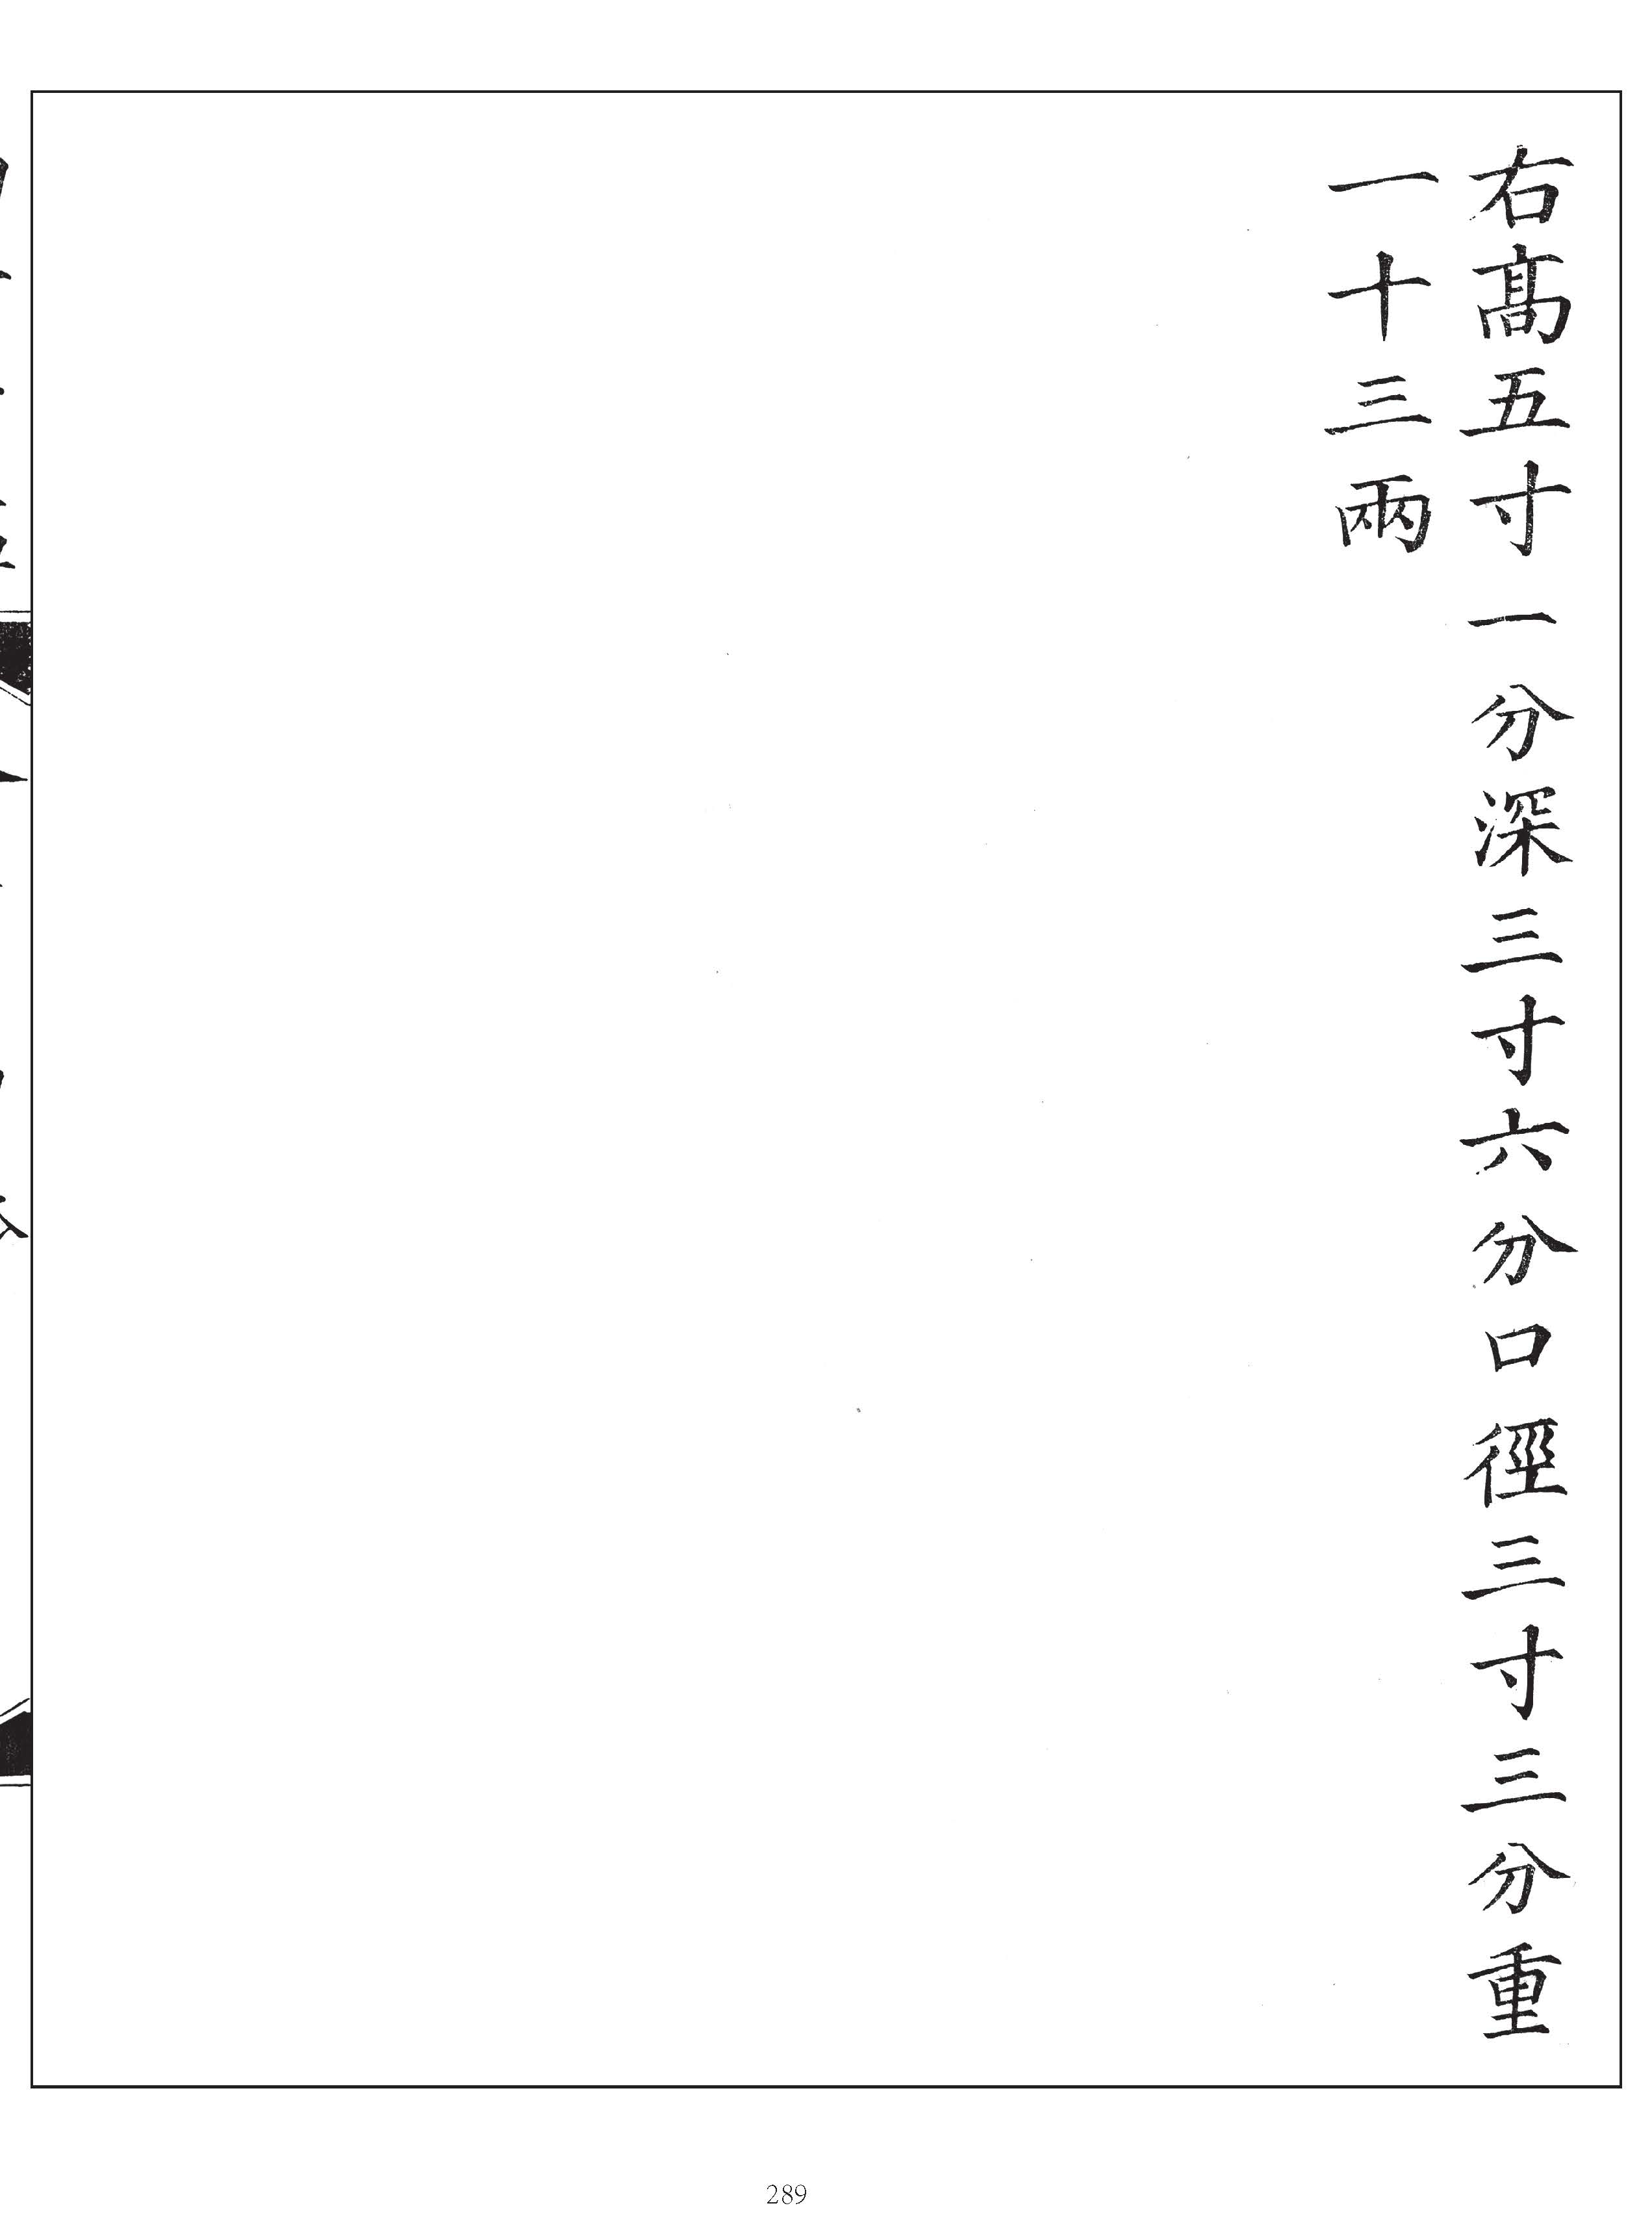 右髙五寸一分深三寸六分口徑三寸三分重
一十三兩
289